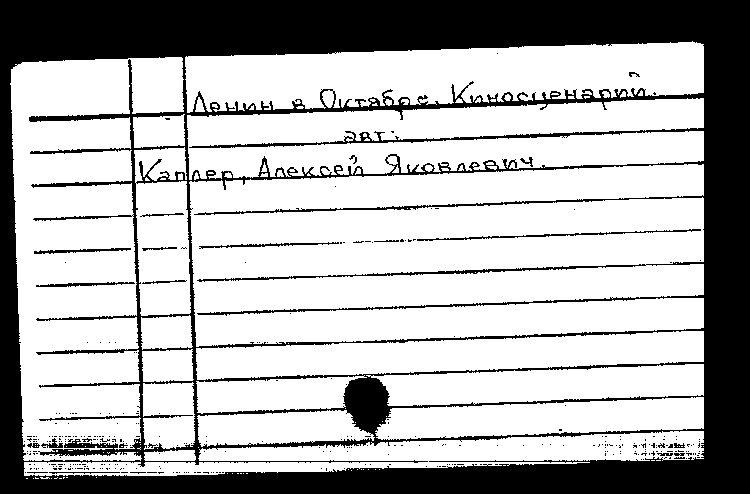 Ленин в Октябре. Киносценарий.
авт.:
Каплер, Алексей Яковлевич.